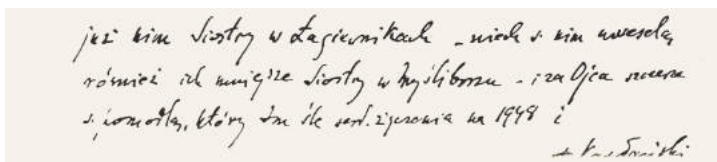 już nim Siostry w Łagiewnikach – niech s. nim uweselą
również ich mniejsze Siostry w Myśliborzu – i za Ojca szczerze
s. pomodlą, który Im śle serd. życzenia na 1948 i